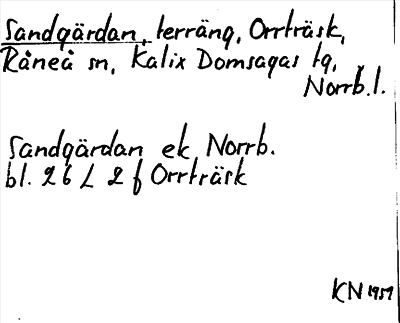 Sandgärdan, terräng, Orrträsk,
Råneå sn, Kalix Domsagas tg,
Norrb.l.
Sandgärdan ek Norrb.
bl. 26 L 2 f Orrträsk
KN 1957